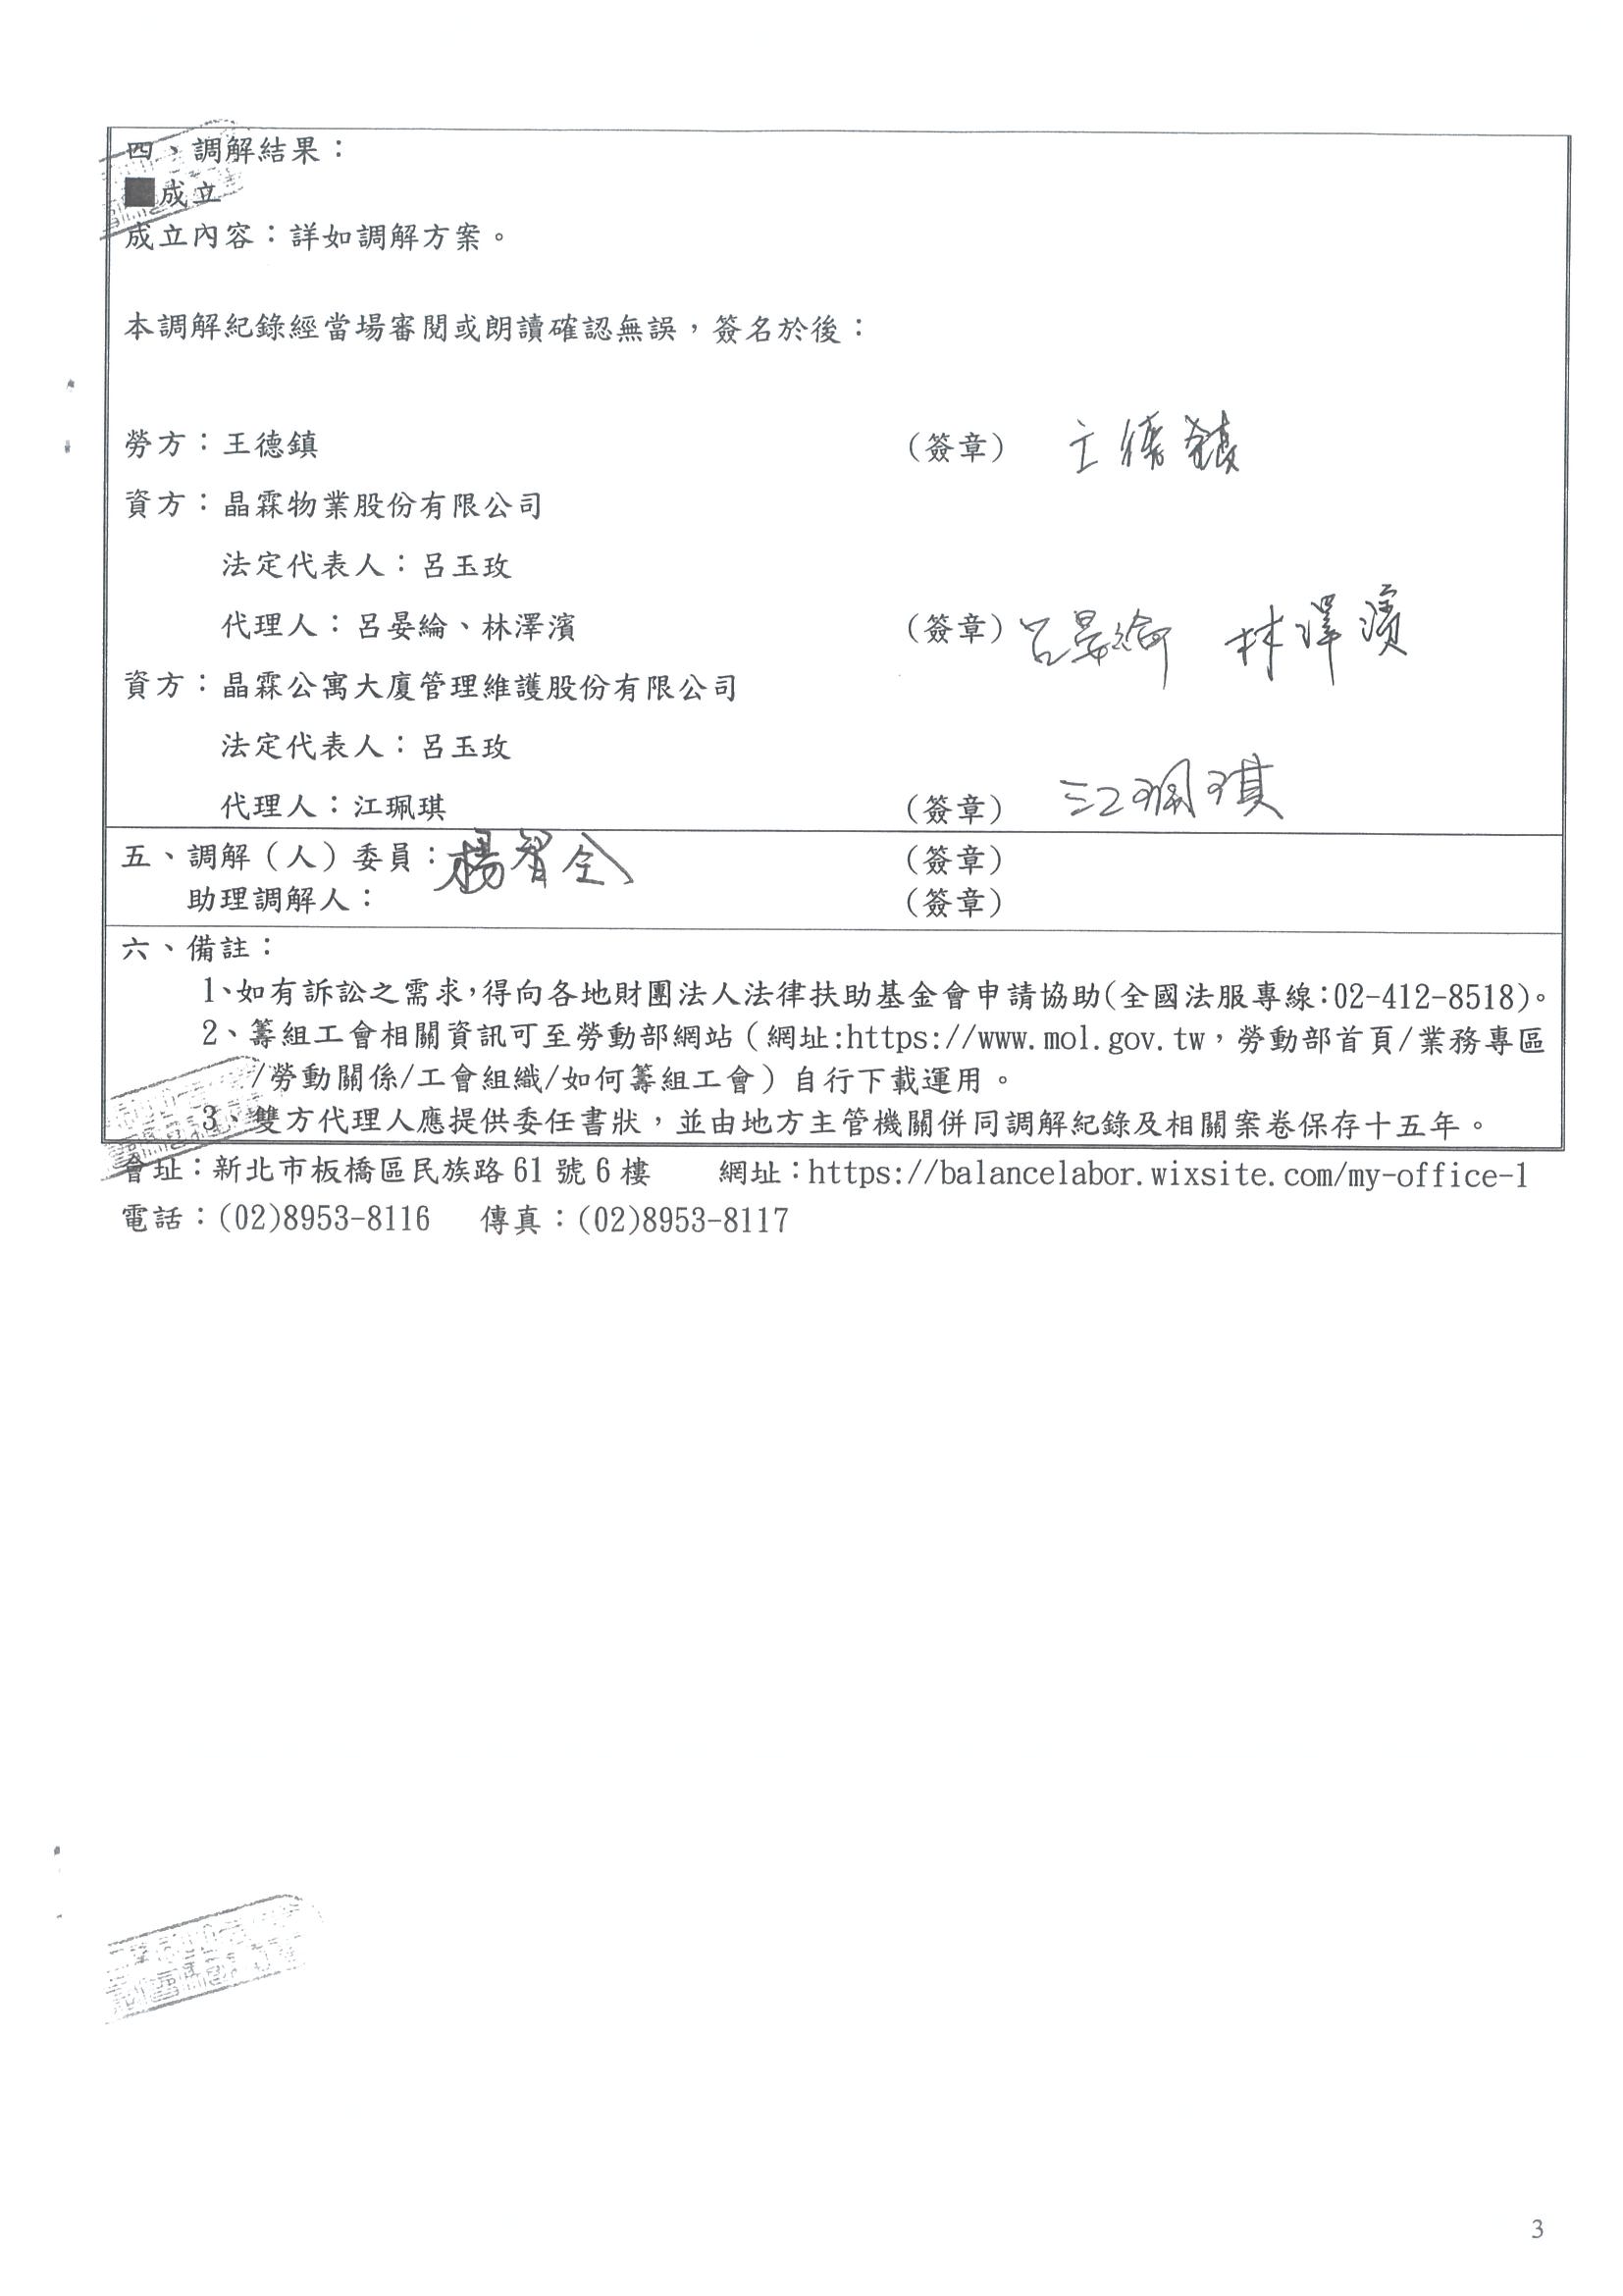 四、調解結果：
■成立
成立內容：詳如調解方案。
本調解紀錄經當場審閱或朗讀確認無誤，簽名於後：
勞方：王德鎮 （簽章） 王德鎮
資方：晶霖物業股份有限公司
法定代表人：呂玉玫
代理人：呂晏綸、林澤濱 （簽章） 呂晏綸 林澤濱
資方：晶霖公寓大廈管理維護股份有限公司
法定代表人：呂玉玫
代理人：江珮琪 （簽章） 江珮琪
五、調解（人）委員：楊智全 （簽章）
助理調解人： （簽章）
六、備註：
1、如有訴訟之需求，得向各地財團法人法律扶助基金會申請協助(全國法服專線：02-412-8518)。
2、籌組工會相關資訊可至勞動部網站（網址:https://www.mol.gov.tw，勞動部首頁/業務專區
/勞動關係/工會組織/如何籌組工會）自行下載運用。
3、雙方代理人應提供委任書狀，並由地方主管機關併同調解紀錄及相關案卷保存十五年。
會址：新北市板橋區民族路 61 號 6 樓 網址：https://balancelabor.wixsite.com/my-office-1
電話：(02)8953-8116 傳真：(02)8953-8117
3